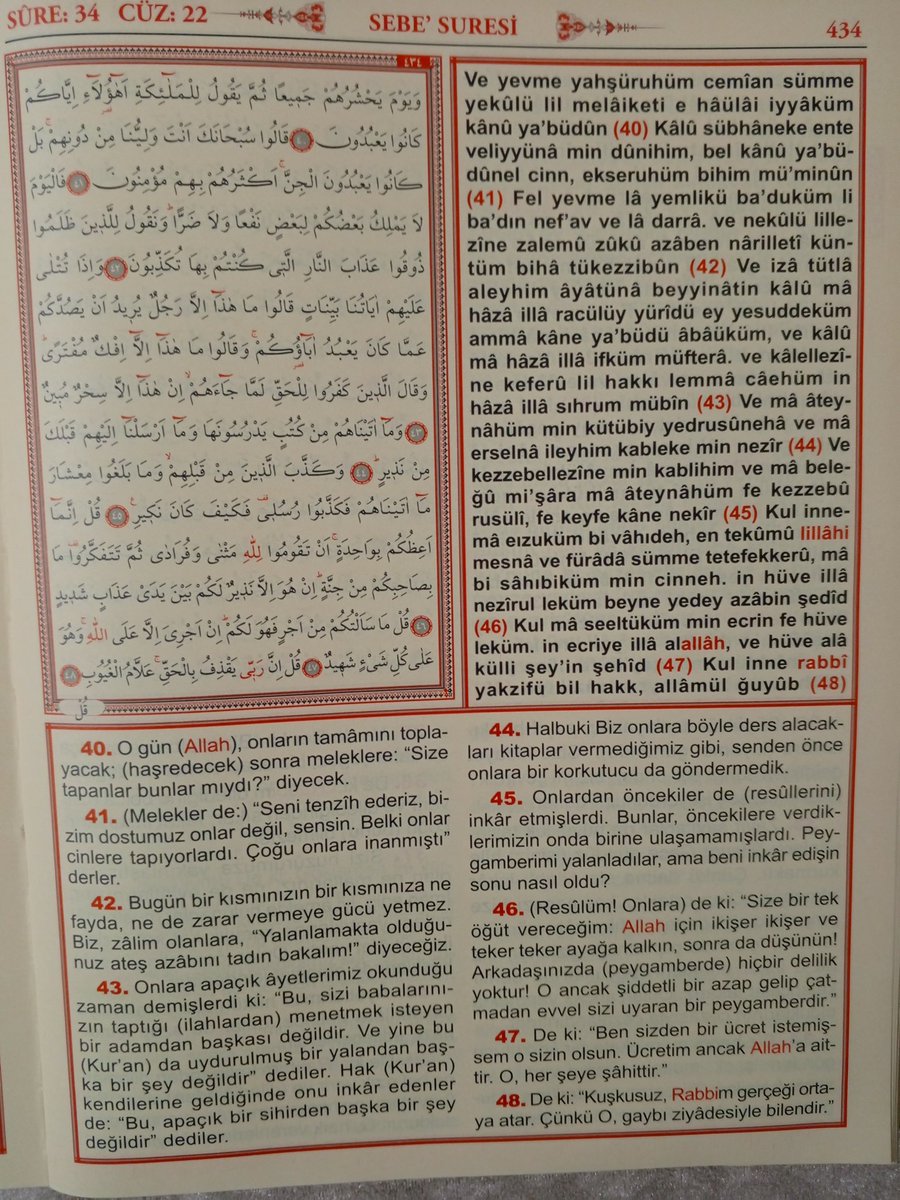 SÛRE: 34 CÜZ: 22
SEBE’ SURESİ
434
٤٣٤
وَيَوْمَ يَحْشُرُهُمْ جَمِيعًا ثُمَّ يَقُولُ لِلْمَلٰٓئِكَةِ اَهٰٓؤُ۬لَٓاءِ اِيَّاكُمْ
كَانُوا يَعْبُدُونَ ﴿٤٠﴾ قَالُوا سُبْحَانَكَ اَنْتَ وَلِيُّنَا مِنْ دُونِهِمْۚ بَلْ
كَانُوا يَعْبُدُونَ الْجِنَّۚ اَكْثَرُهُمْ بِهِمْ مُؤْمِنُونَ ﴿٤١﴾ فَالْيَوْمَ
لَا يَمْلِكُ بَعْضُكُمْ لِبَعْضٍ نَفْعًا وَلَا ضَرًّاۜ وَنَقُولُ لِلَّذِينَ ظَلَمُوا
ذُوقُوا عَذَابَ النَّارِ الَّتِي كُنْتُمْ بِهَا تُكَذِّبُونَ ﴿٤٢﴾ وَاِذَا تُتْلٰى
عَلَيْهِمْ اٰيَاتُنَا بَيِّنَاتٍ قَالُوا مَا هٰذَٓا اِلَّا رَجُلٌ يُرِيدُ اَنْ يَصُدَّكُمْ
عَمَّا كَانَ يَعْبُدُ اٰبَٓاؤُ۬كُمْۚ وَقَالُوا مَا هٰذَٓا اِلَّٓا اِفْكٌ مُفْتَرًىۜ
وَقَالَ الَّذِينَ كَفَرُوا لِلْحَقِّ لَمَّا جَٓاءَهُمْۙ اِنْ هٰذَٓا اِلَّا سِحْرٌ مُبِينٌ
﴿٤٣﴾ وَمَٓا اٰتَيْنَاهُمْ مِنْ كُتُبٍ يَدْرُسُونَهَا وَمَٓا اَرْسَلْنَٓا اِلَيْهِمْ قَبْلَكَ
مِنْ نَذِيرٍۜ ﴿٤٤﴾ وَكَذَّبَ الَّذِينَ مِنْ قَبْلِهِمْۙ وَمَا بَلَغُوا مِعْشَارَ
مَٓا اٰتَيْنَاهُمْ فَكَذَّبُوا رُسُلِي۠ فَكَيْفَ كَانَ نَكِيرِ۟ ﴿٤٥﴾ قُلْ اِنَّمَٓا
اَعِظُكُمْ بِوَاحِدَةٍۚ اَنْ تَقُومُوا لِلّٰهِ مَثْنٰى وَفُرَادٰى ثُمَّ تَتَفَكَّرُوا۠ مَا
بِصَاحِبِكُمْ مِنْ جِنَّةٍۜ اِنْ هُوَ اِلَّا نَذِيرٌ لَكُمْ بَيْنَ يَدَيْ عَذَابٍ شَدِيدٍ
﴿٤٦﴾ قُلْ مَا سَاَلْتُكُمْ مِنْ اَجْرٍ فَهُوَ لَكُمْۜ اِنْ اَجْرِيَ اِلَّا عَلَى اللّٰهِۚ وَهُوَ
عَلٰى كُلِّ شَيْءٍ شَهِيدٌ ﴿٤٧﴾ قُلْ اِنَّ رَبِّي يَقْذِفُ بِالْحَقِّۚ عَلَّامُ الْغُيُوبِ ﴿٤٨﴾
قُلْ
Ve yevme yahşüruhüm cemîan sümme
yekûlü lil melâiketi e hâülâi iyyâküm
kânû ya’büdûn (40) Kâlû sübhâneke ente
veliyyünâ min dûnihim, bel kânû ya’bü-
dûnel cinn, ekseruhüm bihim mü’minûn
(41) Fel yevme lâ yemlikü ba’duküm li
ba’dın nef’av ve lâ darrâ. ve nekûlü lille-
zîne zalemû zûkû azâben nârilletî kün-
tüm bihâ tükezzibûn (42) Ve izâ tütlâ
aleyhim âyâtünâ beyyinâtin kâlû mâ
hâzâ illâ racülüy yürîdü ey yesuddeküm
ammâ kâne ya’büdü âbâüküm, ve kâlû
mâ hâzâ illâ ifküm müfterâ. ve kâlellezî-
ne keferû lil hakkı lemmâ câehüm in
hâzâ illâ sıhrum mübîn (43) Ve mâ âtey-
nâhüm min kütübiy yedrusûnehâ ve mâ
erselnâ ileyhim kableke min nezîr (44) Ve
kezzebellezîne min kablihim ve mâ bele-
ğû mi’şâra mâ âteynâhüm fe kezzebû
rusülî, fe keyfe kâne nekîr (45) Kul inne-
mâ eızuküm bi vâhıdeh, en tekûmû lillâhi
mesnâ ve fürâdâ sümme tetefekkerû, mâ
bi sâhıbiküm min cinneh. in hüve illâ
nezîrul leküm beyne yedey azâbin şedîd
(46) Kul mâ seeltüküm min ecrin fe hüve
leküm. in ecriye illâ alallâh, ve hüve alâ
külli şey’in şehîd (47) Kul inne rabbî
yakzifü bil hakk, allâmül ğuyûb (48)
40. O gün (Allah), onların tamâmını topla-
yacak; (haşredecek) sonra meleklere: “Size
tapanlar bunlar mıydı?” diyecek.
41. (Melekler de:) “Seni tenzîh ederiz, bi-
zim dostumuz onlar değil, sensin. Belki onlar
cinlere tapıyorlardı. Çoğu onlara inanmıştı”
derler.
42. Bugün bir kısmınızın bir kısmınıza ne
fayda, ne de zarar vermeye gücü yetmez.
Biz, zâlim olanlara, “Yalanlamakta olduğu-
nuz ateş azâbını tadın bakalım!” diyeceğiz.
43. Onlara apaçık âyetlerimiz okunduğu
zaman demişlerdi ki: “Bu, sizi babalarını-
zın taptığı (ilahlardan) menetmek isteyen
bir adamdan başkası değildir. Ve yine bu
(Kur’an) da uydurulmuş bir yalandan baş-
ka bir şey değildir” dediler. Hak (Kur’an)
kendilerine geldiğinde onu inkâr edenler
de: “Bu, apaçık bir sihirden başka bir şey
değildir” dediler.
44. Halbuki Biz onlara böyle ders alacak-
ları kitaplar vermediğimiz gibi, senden önce
onlara bir korkutucu da göndermedik.
45. Onlardan öncekiler de (resûllerini)
inkâr etmişlerdi. Bunlar, öncekilere verdik-
lerimizin onda birine ulaşamamışlardı. Pey-
gamberimi yalanladılar, ama beni inkâr edişin
sonu nasıl oldu?
46. (Resûlüm! Onlara) de ki: “Size bir tek
öğüt vereceğim: Allah için ikişer ikişer ve
teker teker ayağa kalkın, sonra da düşünün!
Arkadaşınızda (peygamberde) hiçbir delilik
yoktur! O ancak şiddetli bir azap gelip çat-
madan evvel sizi uyaran bir peygamberdir.”
47. De ki: “Ben sizden bir ücret istemiş-
sem o sizin olsun. Ücretim ancak Allah’a ait-
tir. O, her şeye şâhittir.”
48. De ki: “Kuşkusuz, Rabbim gerçeği orta-
ya atar. Çünkü O, gaybı ziyâdesiyle bilendir.”